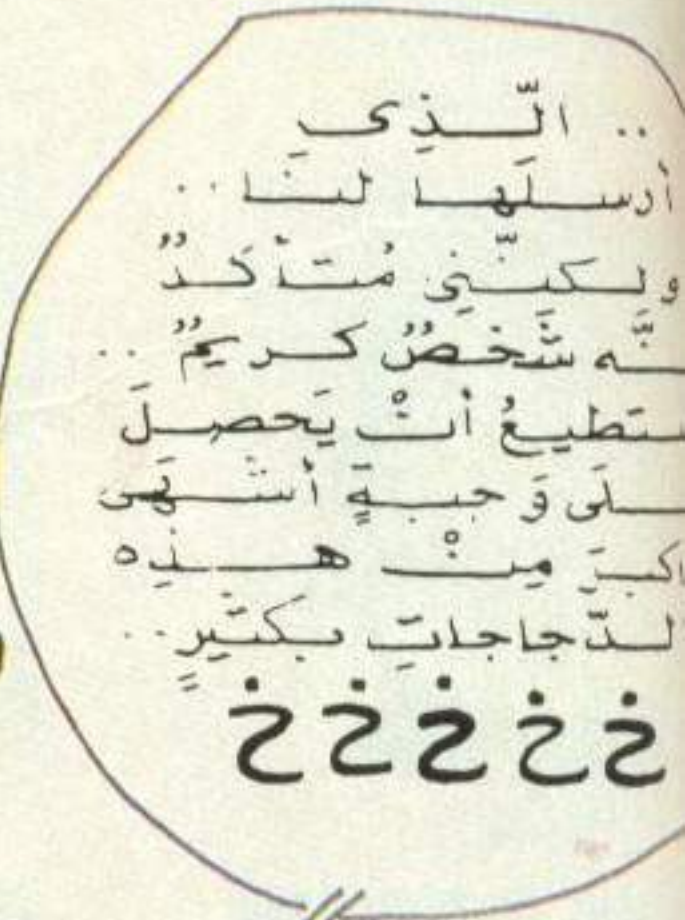 .. الّذِي
أرسلَها لنَا ..
ولكنّنِي مُتأكدٌ
نّه شَخصٌ كريمٌ ..
ستطيعُ أنْ يَحصلَ
لَى وَجبةٍ أشهَى
اكبرَ مِنْ هذِه
لدّجاجاتِ بكثيرٍ ..
خ خ خ خ خ